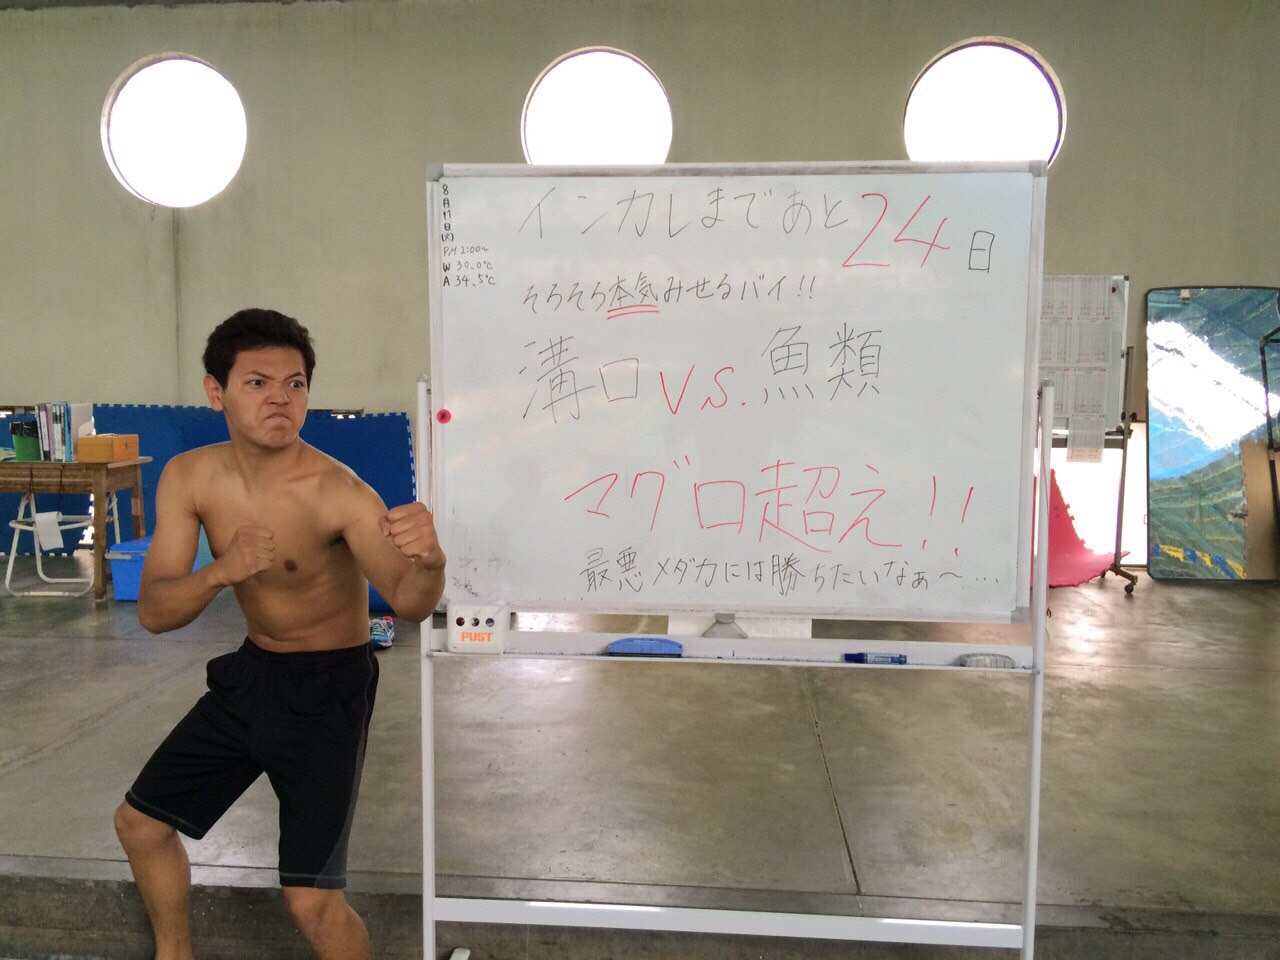 8月11日(火)
PM 2:00~
W 30.0℃
A 34.5℃
インカレまであと24日
そろそろ本気みせるバイ!!
溝口 VS. 魚類
マグロ超え!!
最悪メダカには勝ちたいなぁ〜…